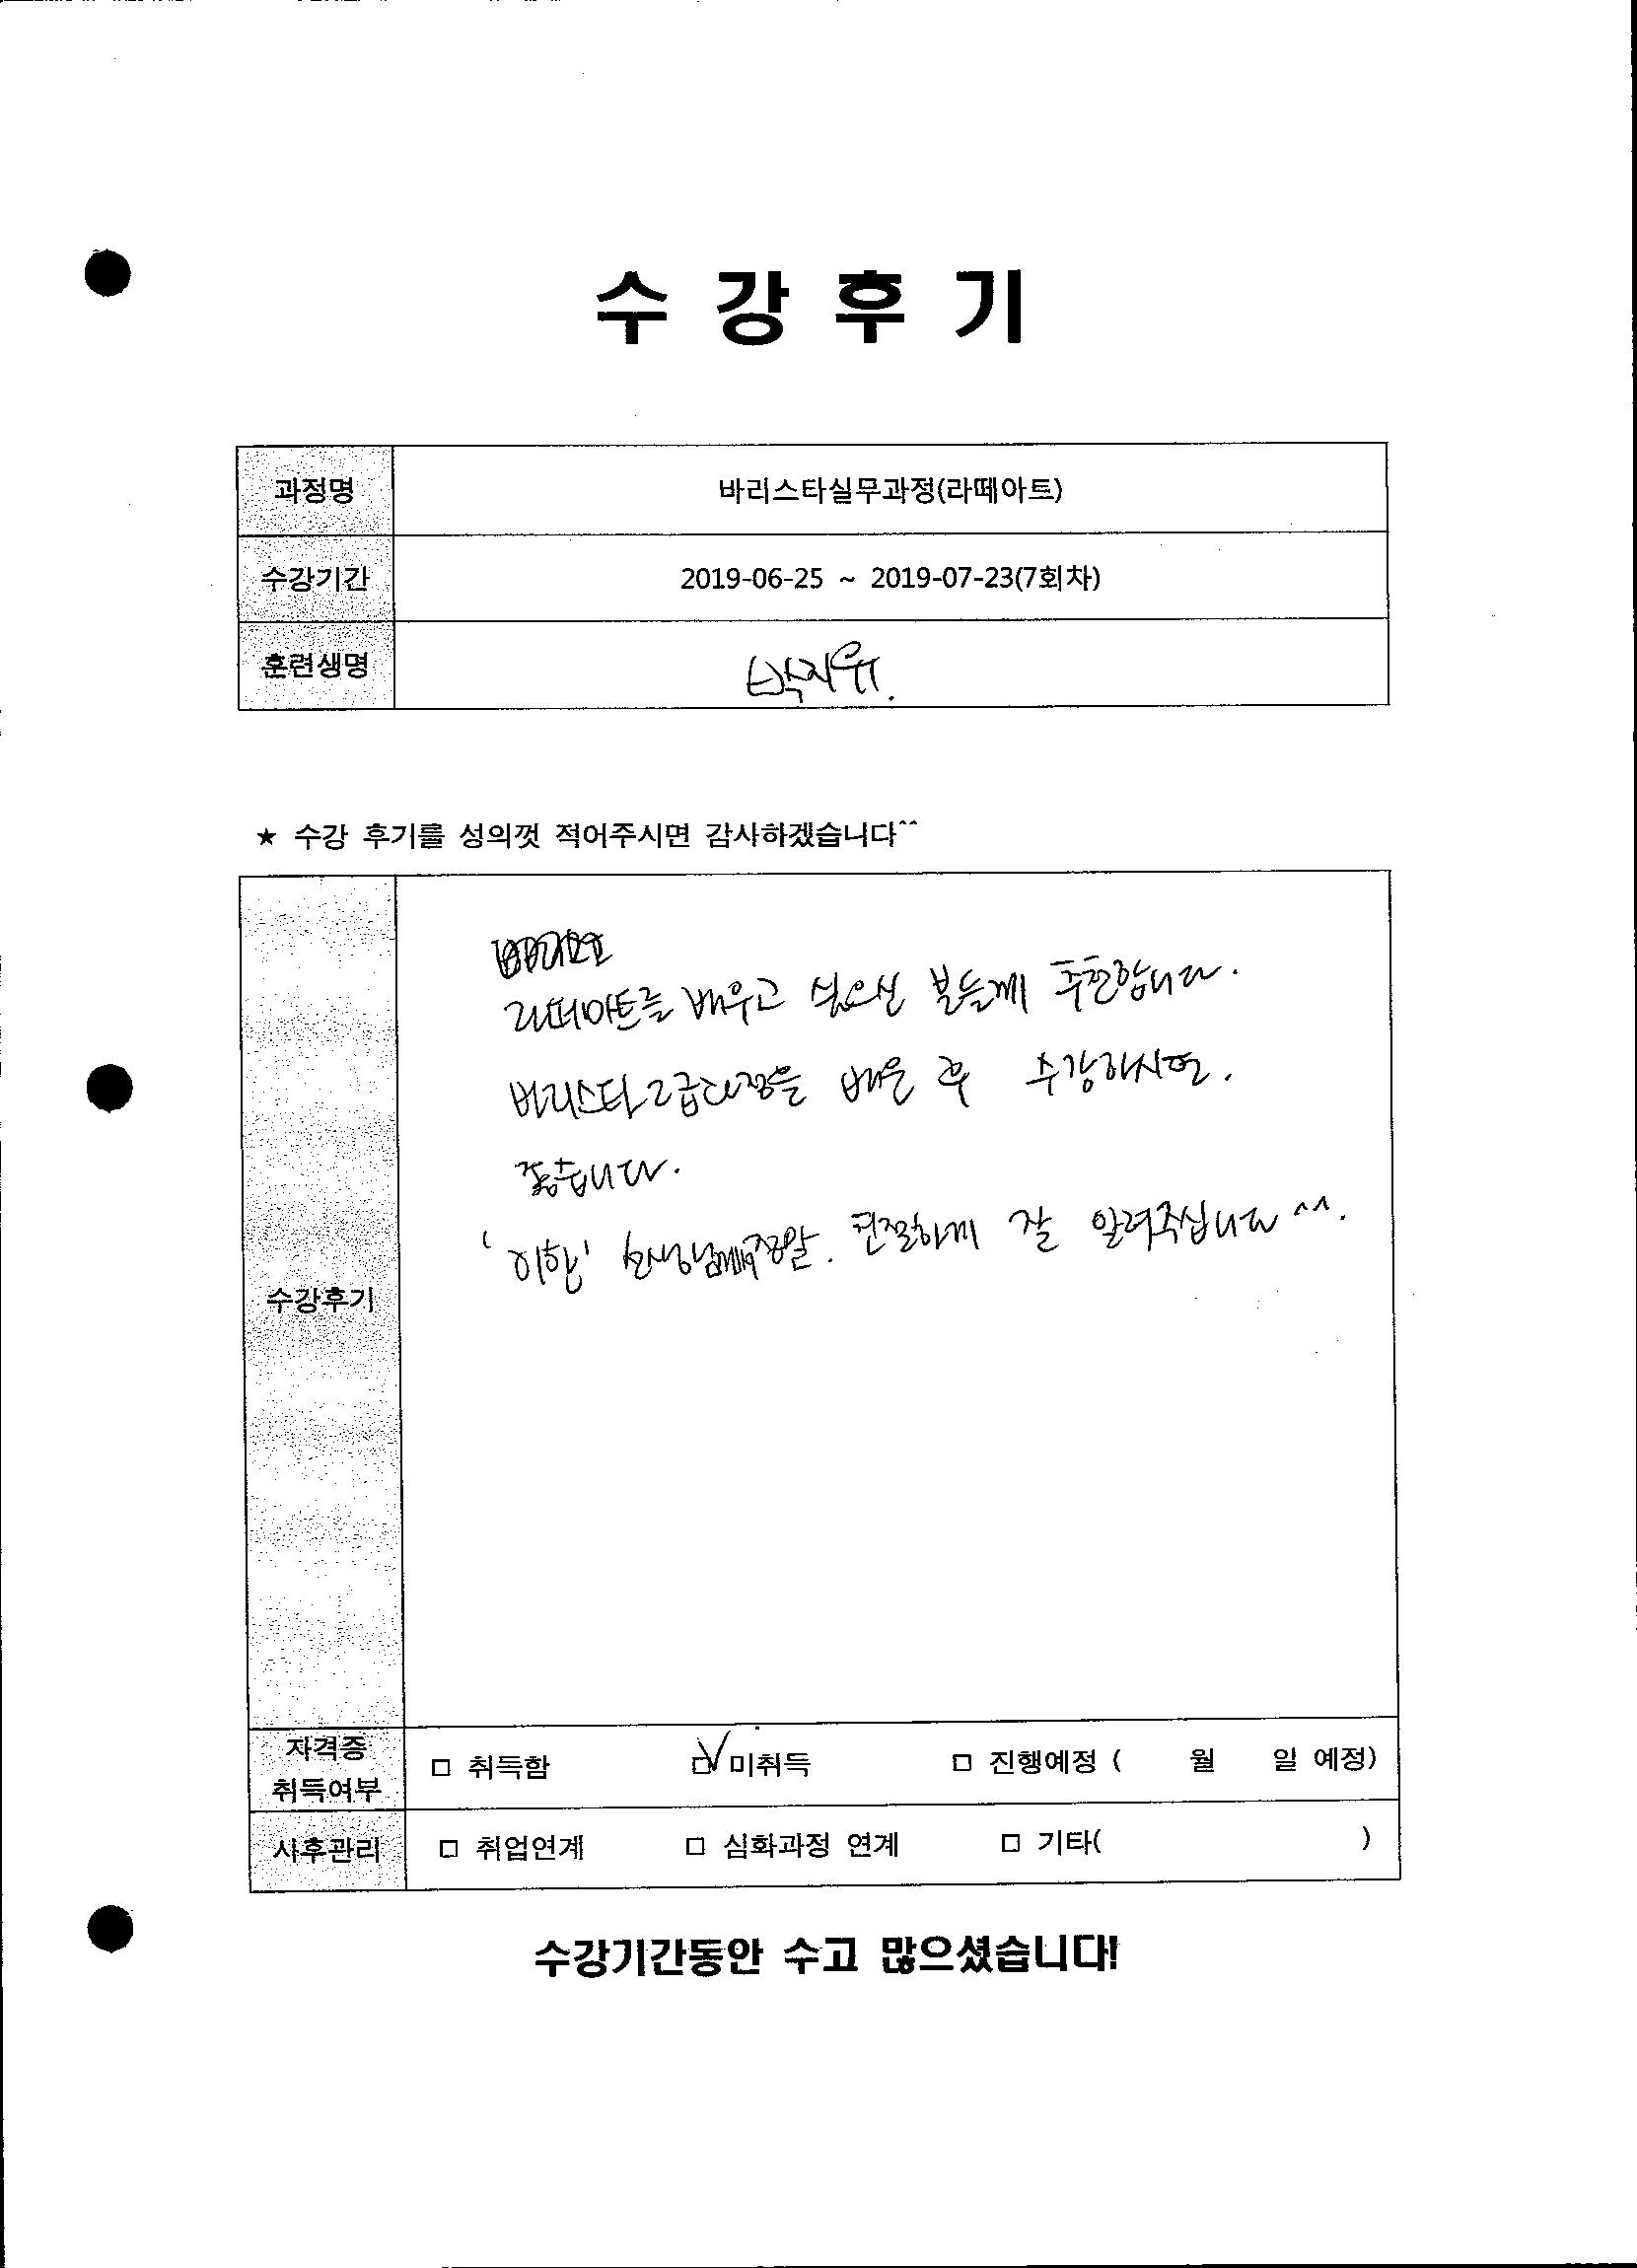 수 강 후 기
과정명 바리스타실무과정(라떼아트)
수강기간 2019-06-25 ~ 2019-07-23(7회차)
훈련생명 박지위.
★ 수강 후기를 성의껏 적어주시면 감사하겠습니다^^
라떼아트를 배우고 싶으신 분들께 추천합니다.
바리스타 2급과정을 배운 후 수강하시면.
좋습니다.
선생님께서 정말. 친절하게 잘 알려주십니다 ^^.
수강후기
자격증
취득여부
□ 취득함 ☑ 미취득 □ 진행예정 ( 월 일 예정)
사후관리 □ 취업연계 □ 심화과정 연계 □ 기타( )
수강기간동안 수고 많으셨습니다!